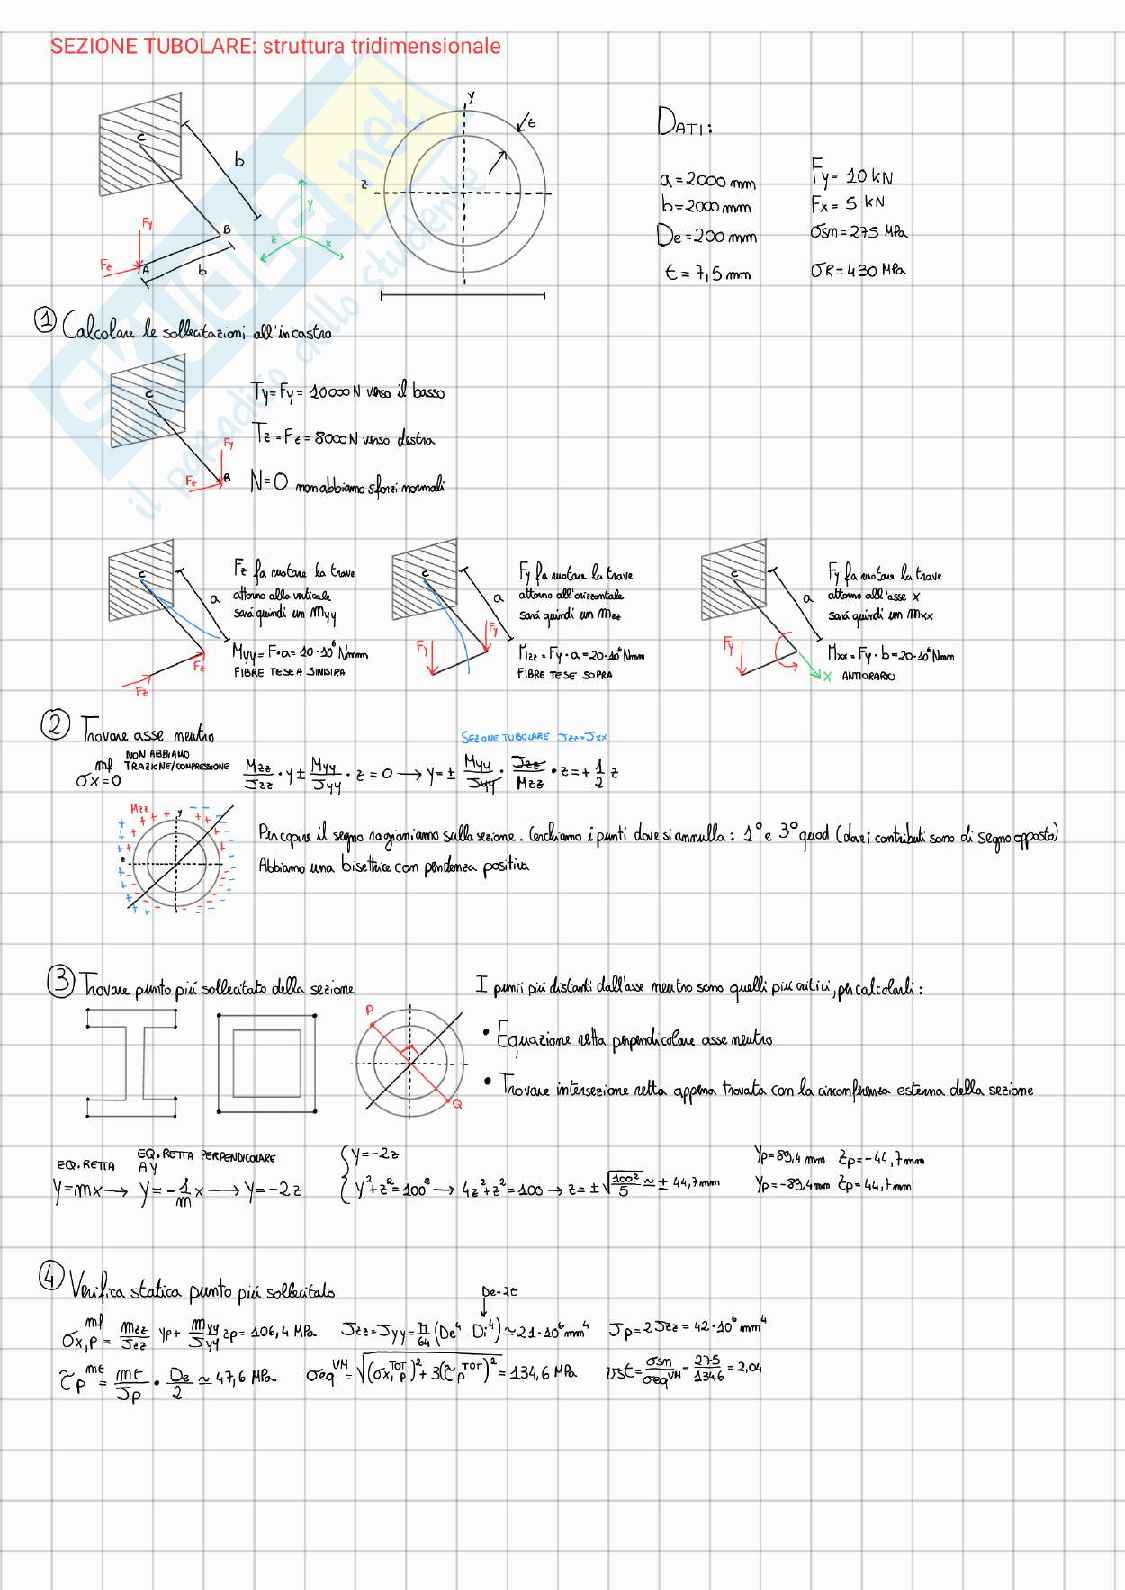 SEZIONE TUBOLARE: struttura tridimensionale
DATI:
a = 2000 mm
b = 2000 mm
De = 200 mm
t = 7,5 mm
Fy = 10 kN
Fx = 5 kN
σsn = 275 MPa
σR = 430 MPa
C
b
B
Fy
Fz
A
b
y
z
x
y
z
t
① Calcolare le sollecitazioni all'incastro
C
Fy
Fz
B
Ty = Fy = 10000 N verso il basso
Tz = Fz = 8000 N verso destra
N = 0 non abbiamo sforzi normali
C
a
Fz
Fz
Fz fa ruotare la trave
attorno alla verticale
sarà quindi un Myy
Myy = F · a = 10 · 10⁶ Nmm
FIBRE TESE A SINISRA
C
a
Fy
Fy
Fy fa ruotare la trave
attorno all'orizzontale
sarà quindi un Mzz
Mzz = Fy · a = 20 · 10⁶ Nmm
FIBRE TESE SOPRA
C
a
Fy
x
Fy fa ruotare la trave
attorno all'asse x
sarà quindi un Mxx
Mxx = Fy · b = 20 · 10⁶ Nmm
ANTIORARIO
② Trovare asse neutro
SEZIONE TUBOLARE Jzz = Jxx
σx^mf = 0 NON ABBIAMO TRAZIONE/COMPRESSIONE
Mzz/Jzz · y ± Myy/Jyy · z = 0 → y = ± Myy/Jyy · Jzz/Mzz · z = + 1/2 z
Mzz
y
Per capire il segno ragioniamo sulla sezione. Cerchiamo i punti dove si annulla: 1° e 3° quad (dove i contributi sono di segno opposto)
Abbiamo una bisettrice con pendenza positiva
③ Trovare punto più sollecitato della sezione
I punti più distanti dall'asse neutro sono quelli più critici, per calcolarli:
• Equazione retta perpendicolare asse neutro
• Trovare intersezione retta appena trovata con la circonferenza esterna della sezione
P
Q
EQ. RETTA
EQ. RETTA PERPENDICOLARE
AY
y = mx → y = -1/m x → y = -2z
{ y = -2z
y² + z² = 100² → 4z² + z² = 100 → z = ± √(100²/5) ≃ ± 44,7 mm
yp = 89,4 mm zp = -44,7 mm
yp = -89,4 mm zp = 44,7 mm
④ Verifica statica punto più sollecitato
De-2t
σx,p^mf = Mzz/Jzz yp + Myy/Jyy zp = 106,4 MPa
Jzz = Jyy = π/64 (De⁴ Di⁴) ~ 21 · 10⁶ mm⁴
Jp = 2Jzz = 42 · 10⁶ mm⁴
τp^mt = mt/Jp · De/2 ≃ 47,6 MPa
σeq^VM = √((σx,p^TOT)² + 3(τp^TOT)²) = 134,6 MPa
νst = σsn/σeq^VM = 275/134,6 = 2,04
SKUOLA.net
il paradiso dello studente